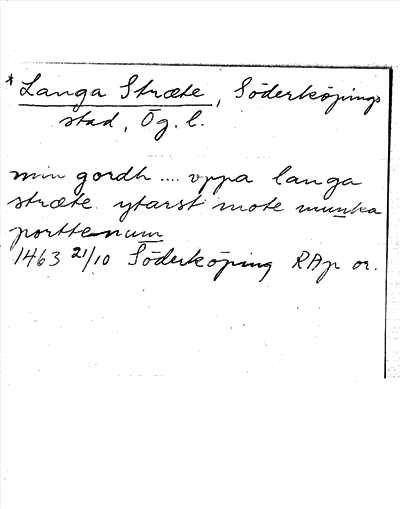 * Langa Stræte, Söderköpings
stad, Ög. l.
min gordh .... vppa langa
stræte ytarst mote munka
porttenum
1463 21/10 Söderköping RAp or.